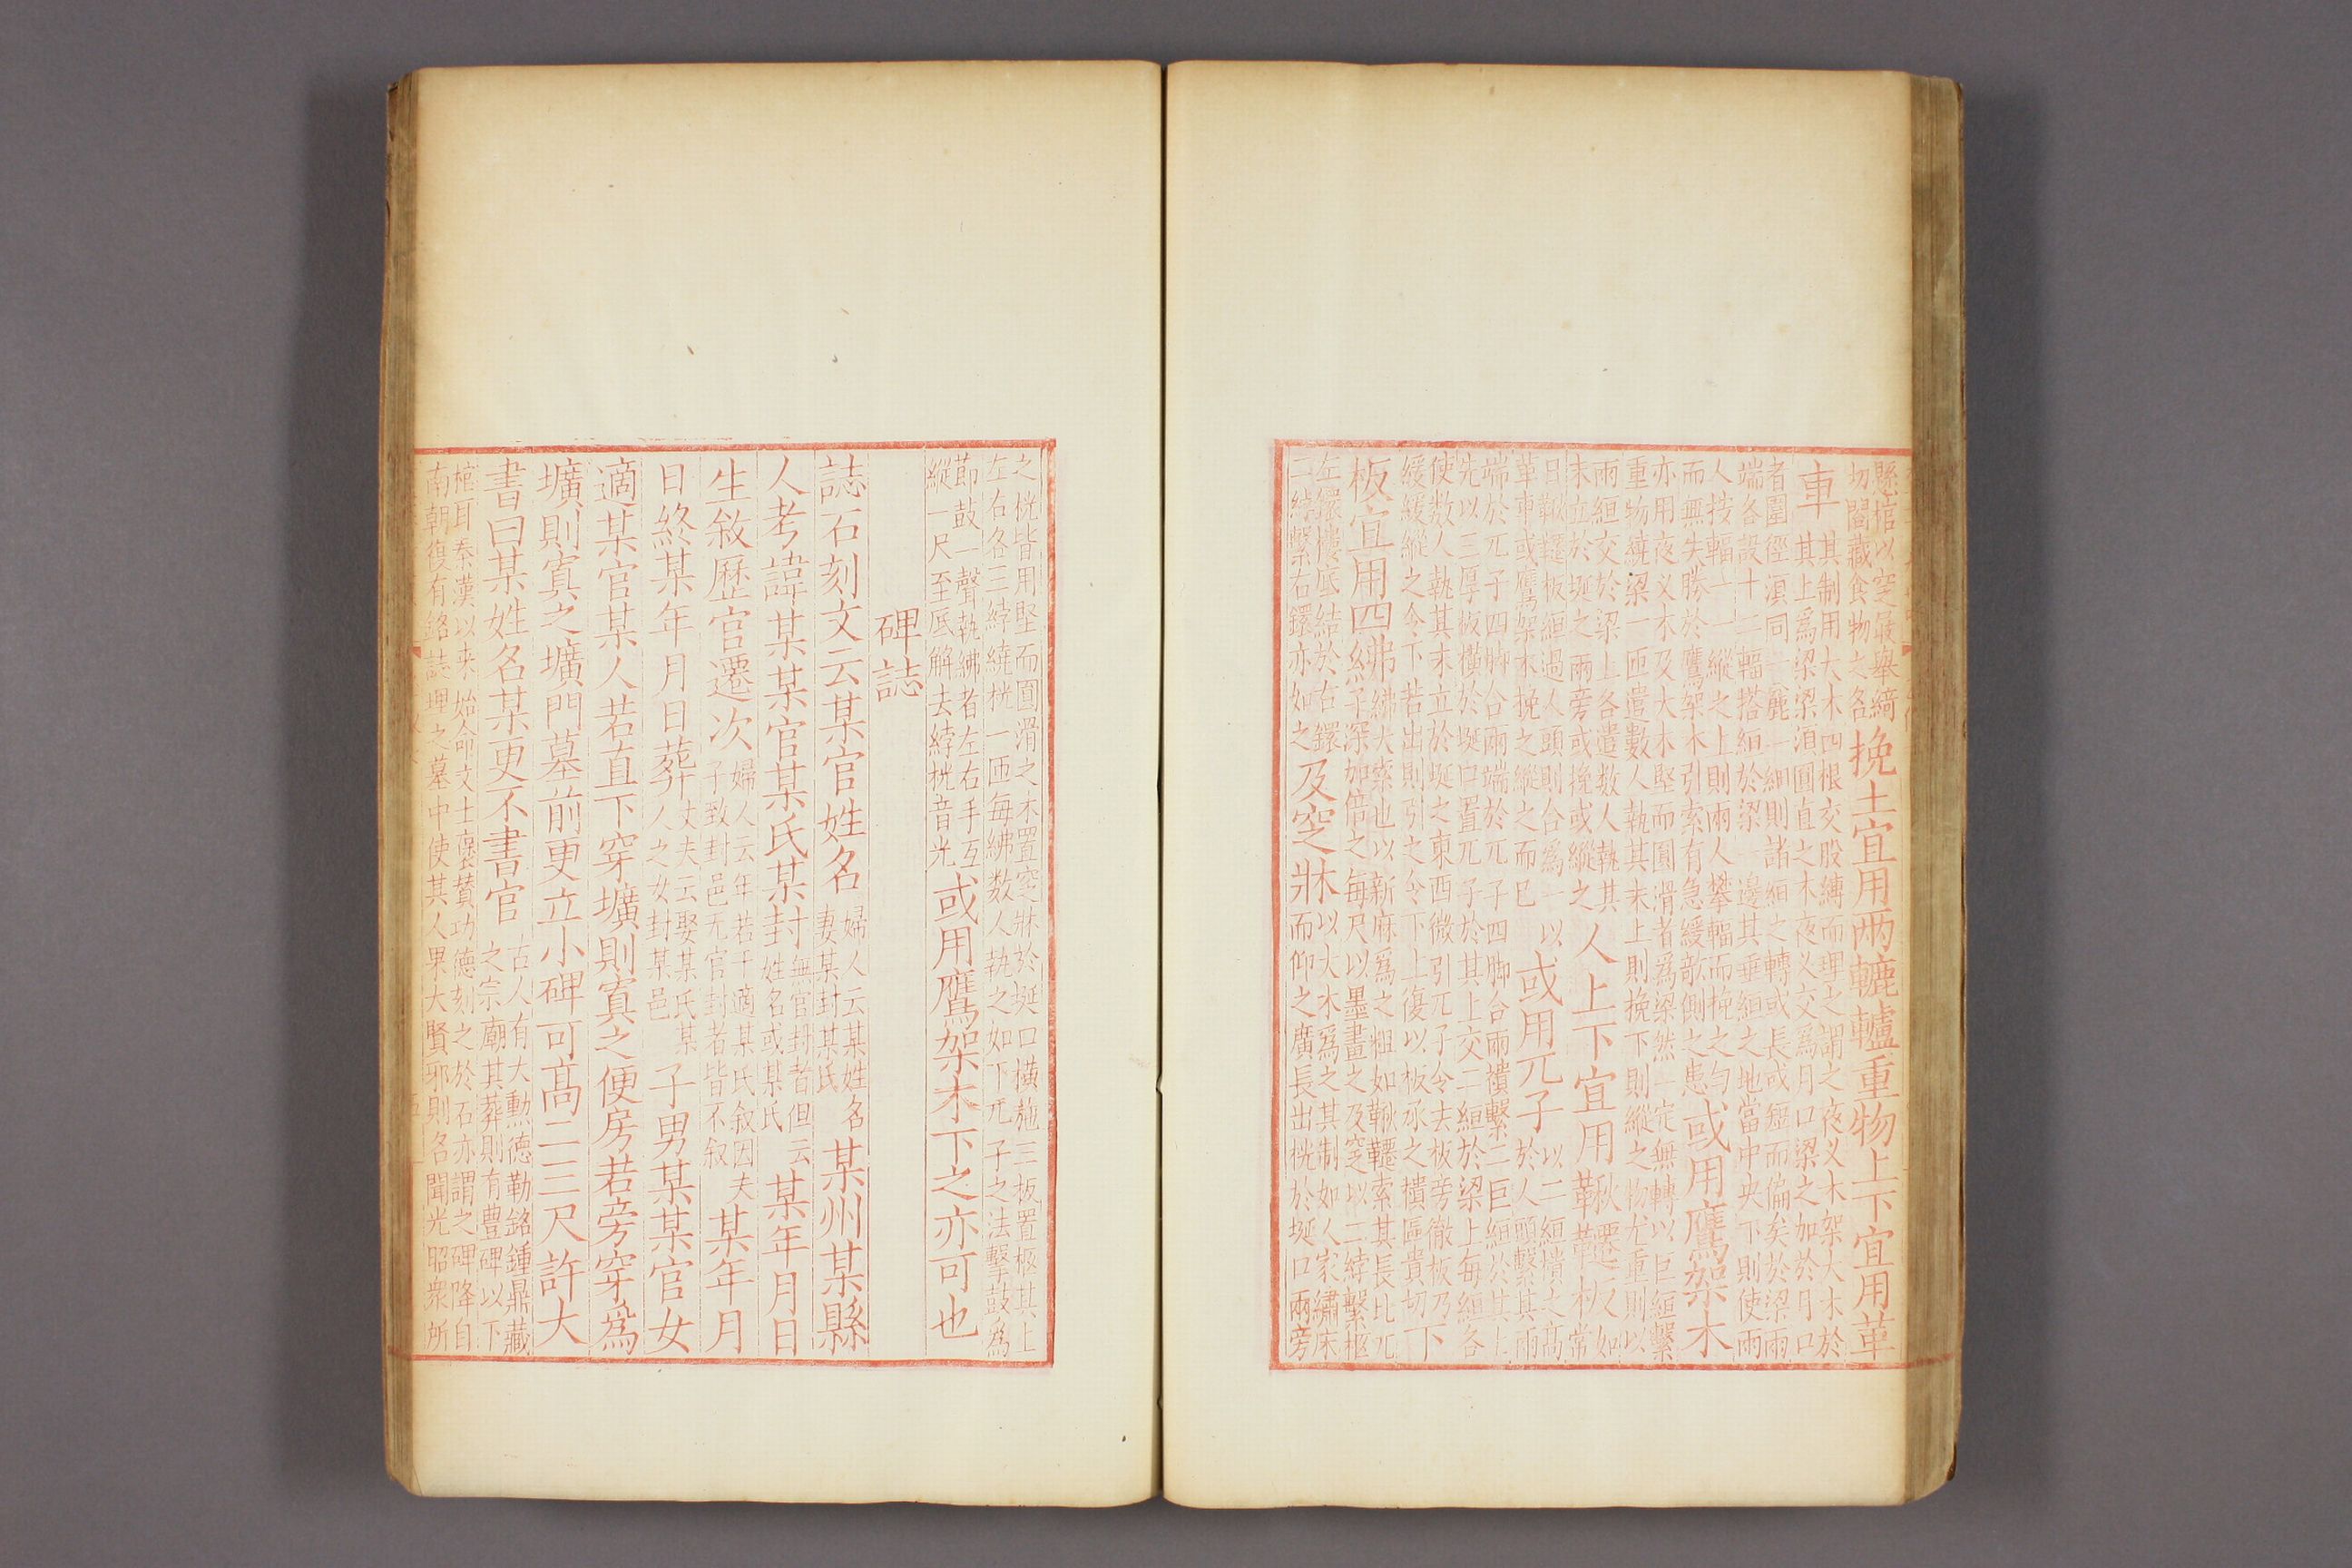 縣棺以窆最舉綍
切閣藏食物之名
挽土宜用兩轆轤重物上下宜用革
車
其制用大木四根交股縛而埋之謂之夜义木架大木於
其上爲梁梁須圓直之木夜义交爲月口梁之加於月口
者圍徑須同一麄一細則諸絙之轉或長或短而偏矣於梁兩
端各設十二輻搭絙於梁一邊其垂絙之地當中央下則使兩
人按輻一一縱之上則兩人攀輻而挽之勻
而無失勝於鷹架木引索有急緩欹側之患
或用鷹架木
亦用夜义木及大木堅而圓滑者爲梁然一定無轉以巨絙繫
重物繞梁一匝遣數人執其末上則挽下則縱之物尤重則以
兩絙交於梁上各遣数人執其
末立於埏之兩旁或挽或縱之
人上下宜用鞦韆板
如
常
日鞦韆板絙過人頭則合爲一以
革車或鷹架木挽之縱之而已
或用兀子
以二絙横之高
於人頭繫其兩
端於兀子四脚合兩端於兀子四脚合兩横繫二巨絙於其上
先以三厚板横於埏口置兀子於其上交二絙於梁上每絙各
使数人執其末立於埏之東西微引兀子令去板旁徹板乃下
緩緩縱之令下若出則引之令下上復以板承之樻區貴切
下
板宜用四紼
紼大索也以新麻爲之粗如鞦韆索其長比兀
子深加倍之每尺以墨畫之及窆以二綍繫柩
左鐶摟底結於右鐶
二綍繫右鐶亦如之
及窆牀
以大木爲之其制如人家繡床
而仰之廣長出桄於埏口兩旁
之桄皆用堅而圓滑之木置窆牀於埏口横施三板置柩其上
左右各三綍繞桄一匝每紼数人執之如下兀子之法擊鼓爲
節鼓一聲執紼者左右手互
縱一尺至底解去綍桄音光
或用鷹架木下之亦可也
碑誌
誌石刻文云某官姓名
婦人云某姓名
妻某封某氏
某州某縣
人考諱某某官某氏某封
無官封者但云
姓名或某氏
某年月日
生敘歷官遷次
婦人云年若干適某氏叙因夫
子致封邑无官封者皆不叙
某年月
日終某年月日葬
丈夫云娶某氏某
人之女封某邑
子男某某官女
適某官某人若直下穿壙則寘之便房若旁穿爲
壙則寘之壙門墓前更立小碑可高二三尺許大
書曰某姓名某更不書官
古人有大勲德勒銘鍾鼎藏
之宗廟其葬則有豊碑以下
棺耳秦漢以来始命文士褒賛功德刻之於石亦謂之碑降自
南朝復有銘誌埋之墓中使其人果大賢邪則名聞光昭衆所